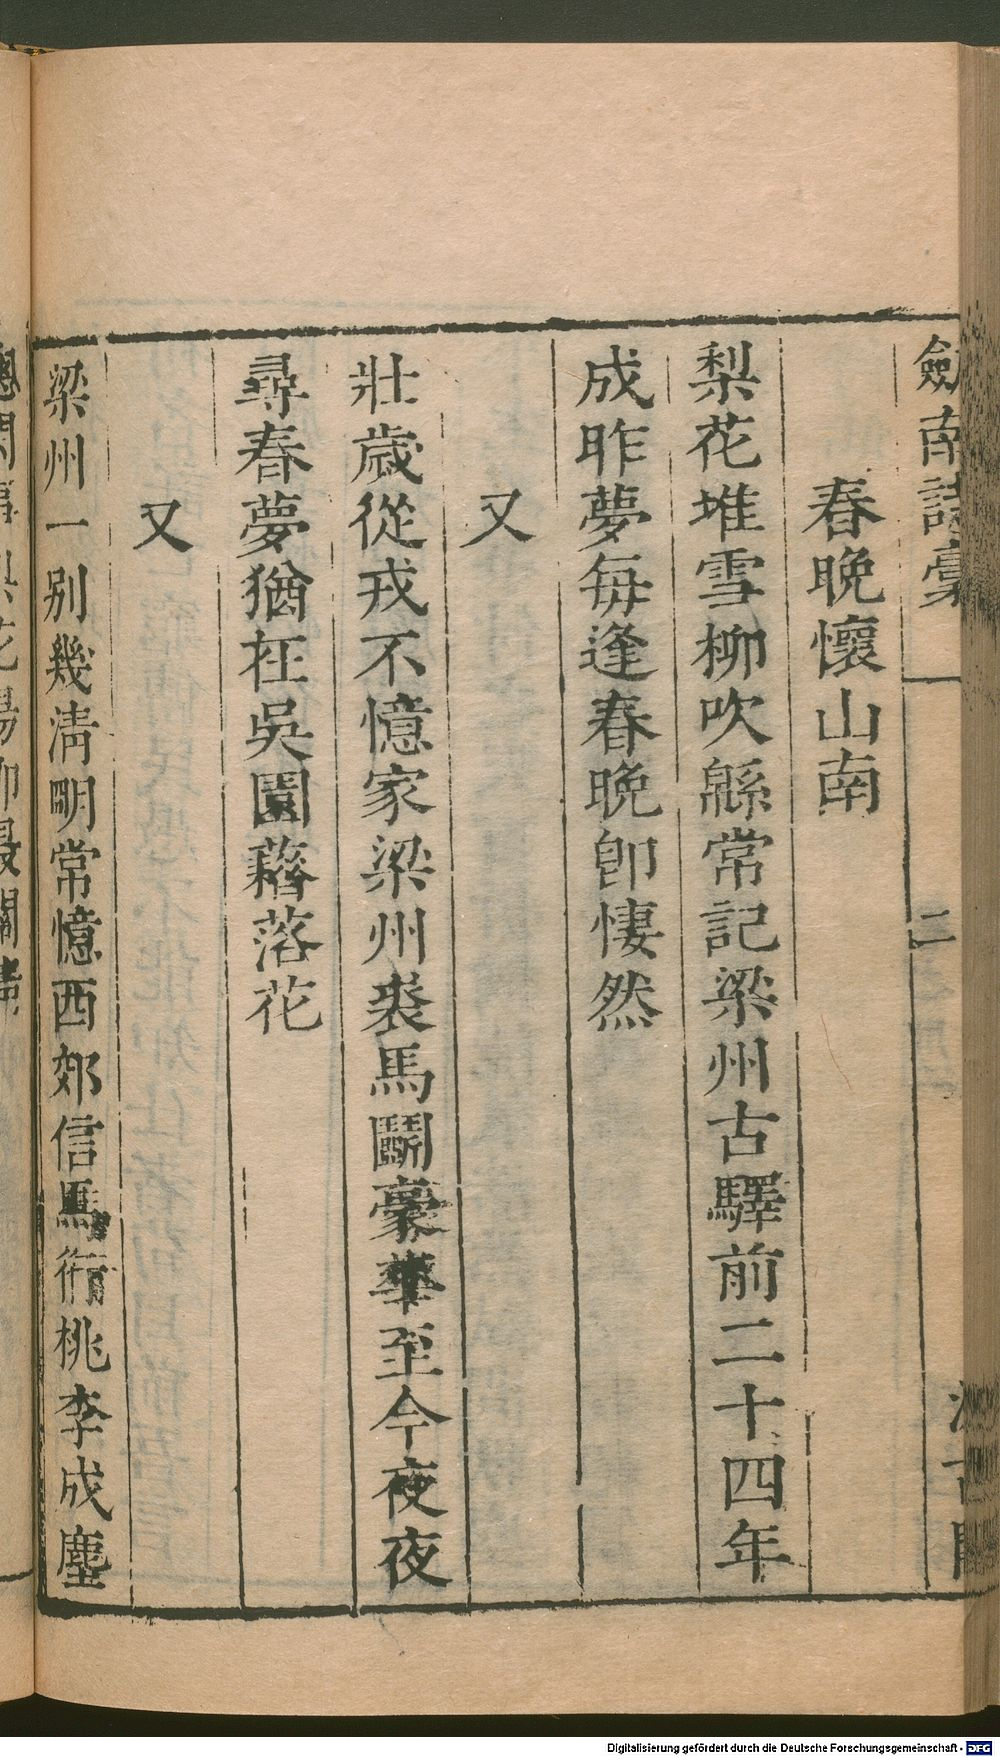 劒南詩稾 二
春晚懷山南
梨花堆雪柳吹緜常記梁州古驛前二十四年
成昨夢每逢春晚卽悽然
又
壯歲從戎不憶家梁州裘馬鬭豪華至今夜夜
尋春夢猶在吳園藉落花
又
梁州一別幾淸明常憶西郊信馬行桃李成塵
Digitalisierung gefördert durch die Deutsche Forschungsgemeinschaft - DFG